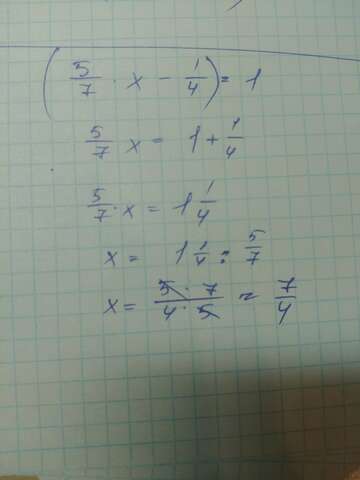 (5/7 · x − 1/4) = 1
5/7 x = 1 + 1/4
5/7 · x = 1 1/4
x = 1 1/4 : 5/7
x = 5 · 7 / 4 · 5 = 7/4